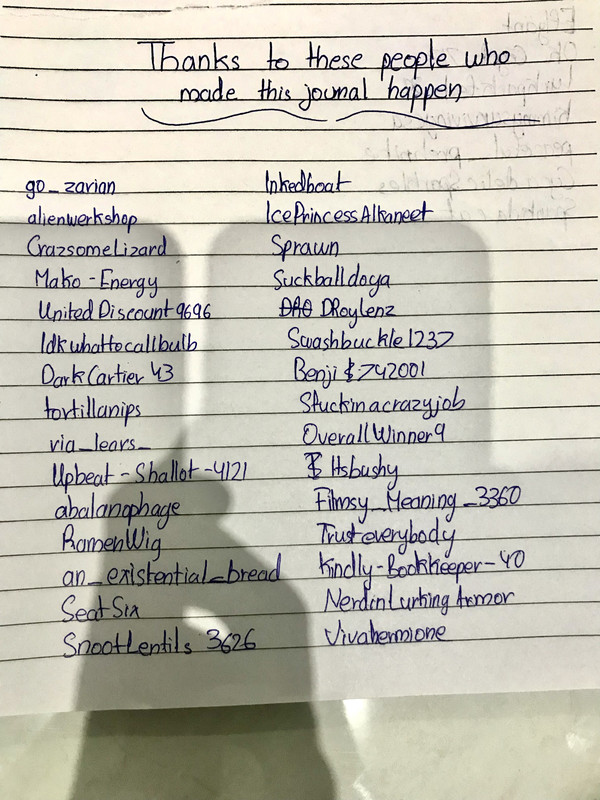 Thanks to these people who
made this journal happen
go_zarian
alienwerkshop
CrazsomeLizard
Mako-Energy
United Discount 9696
Idkwhattocallbulb
Dark Cartier 43
tortillanips
via_lears_
Upbeat-Shallot-4121
abalanophage
RamenWig
an_existential_bread
SeatSix
SnootLentils 3626
Inkedboat
IcePrincessAlkaneet
Sprawn
Suckballdoya
DRoylenz
Swashbuckle1237
Benji $742001
Stuckinacrazyjob
OverallWinner9
Itsbushy
Filmsy_Meaning_3360
Trusteverybody
Kindly-Bookkeeper-40
NerdinLurkingArmor
Vivahermione